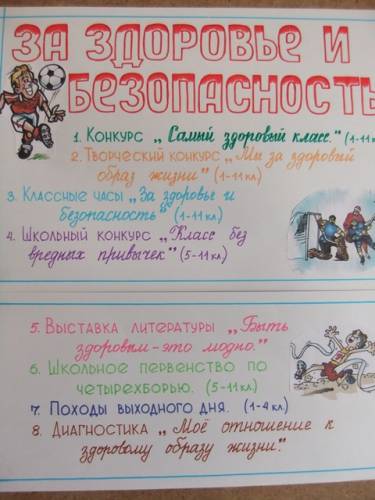 ЗА ЗДОРОВЬЕ И
БЕЗОПАСНОСТЬ
1. Конкурс „Самый здоровый класс." (1-11
2. Творческий конкурс „Мы за здоровый
образ жизни" (1-11кл)
3. Классные часы „За здоровье и
безопасность" (1-11 кл)
4. Школьный конкурс „Класс без
вредных привычек" (5-11кл)
5. Выставка литературы „Быть
здоровым - это модно."
6. Школьное первенство по
четырехборью. (5-11 кл)
7. Походы выходного дня. (1-4 кл)
8. Диагностика „Моё отношение к
здоровому образу жизни".